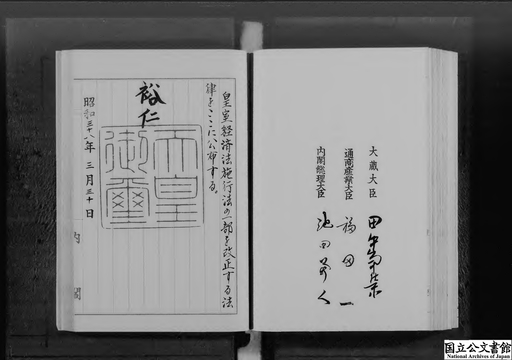 大蔵大臣 田中角榮
通商産業大臣 福田一
内閣総理大臣 池田勇人
皇室経済法施行法の一部を改正する法
律をここに公布する。
裕仁
天皇
御璽
昭和三十八年三月三十日
内閣
国立公文書館
National Archives of Japan